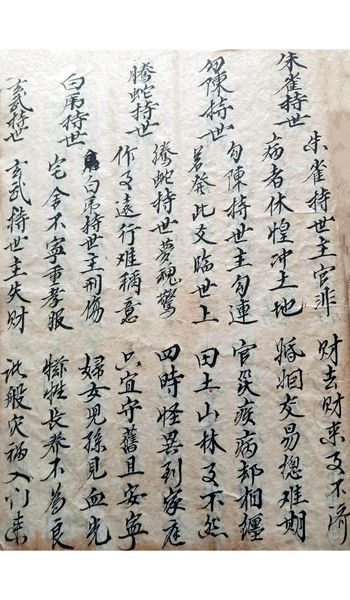 朱雀持世
朱雀持世主官非 財去財來又不濟
病者休惶冲土地 婚姻交易總难期
勾陳持世
勾陳持世主勾連 官災疾病却相纏
若發此爻臨世上 田土山林又不然
騰蛇持世
騰蛇持世夢魂驚 四時怪異到家庭
作又遠行难稱意 只宜守舊且安寧
白虎持世
白虎持世主刑傷 婦女児孫見血光
宅舍不寧重孝服 犠牲長养不為良
玄武持世
玄武持世主失財 般灾禍入门来